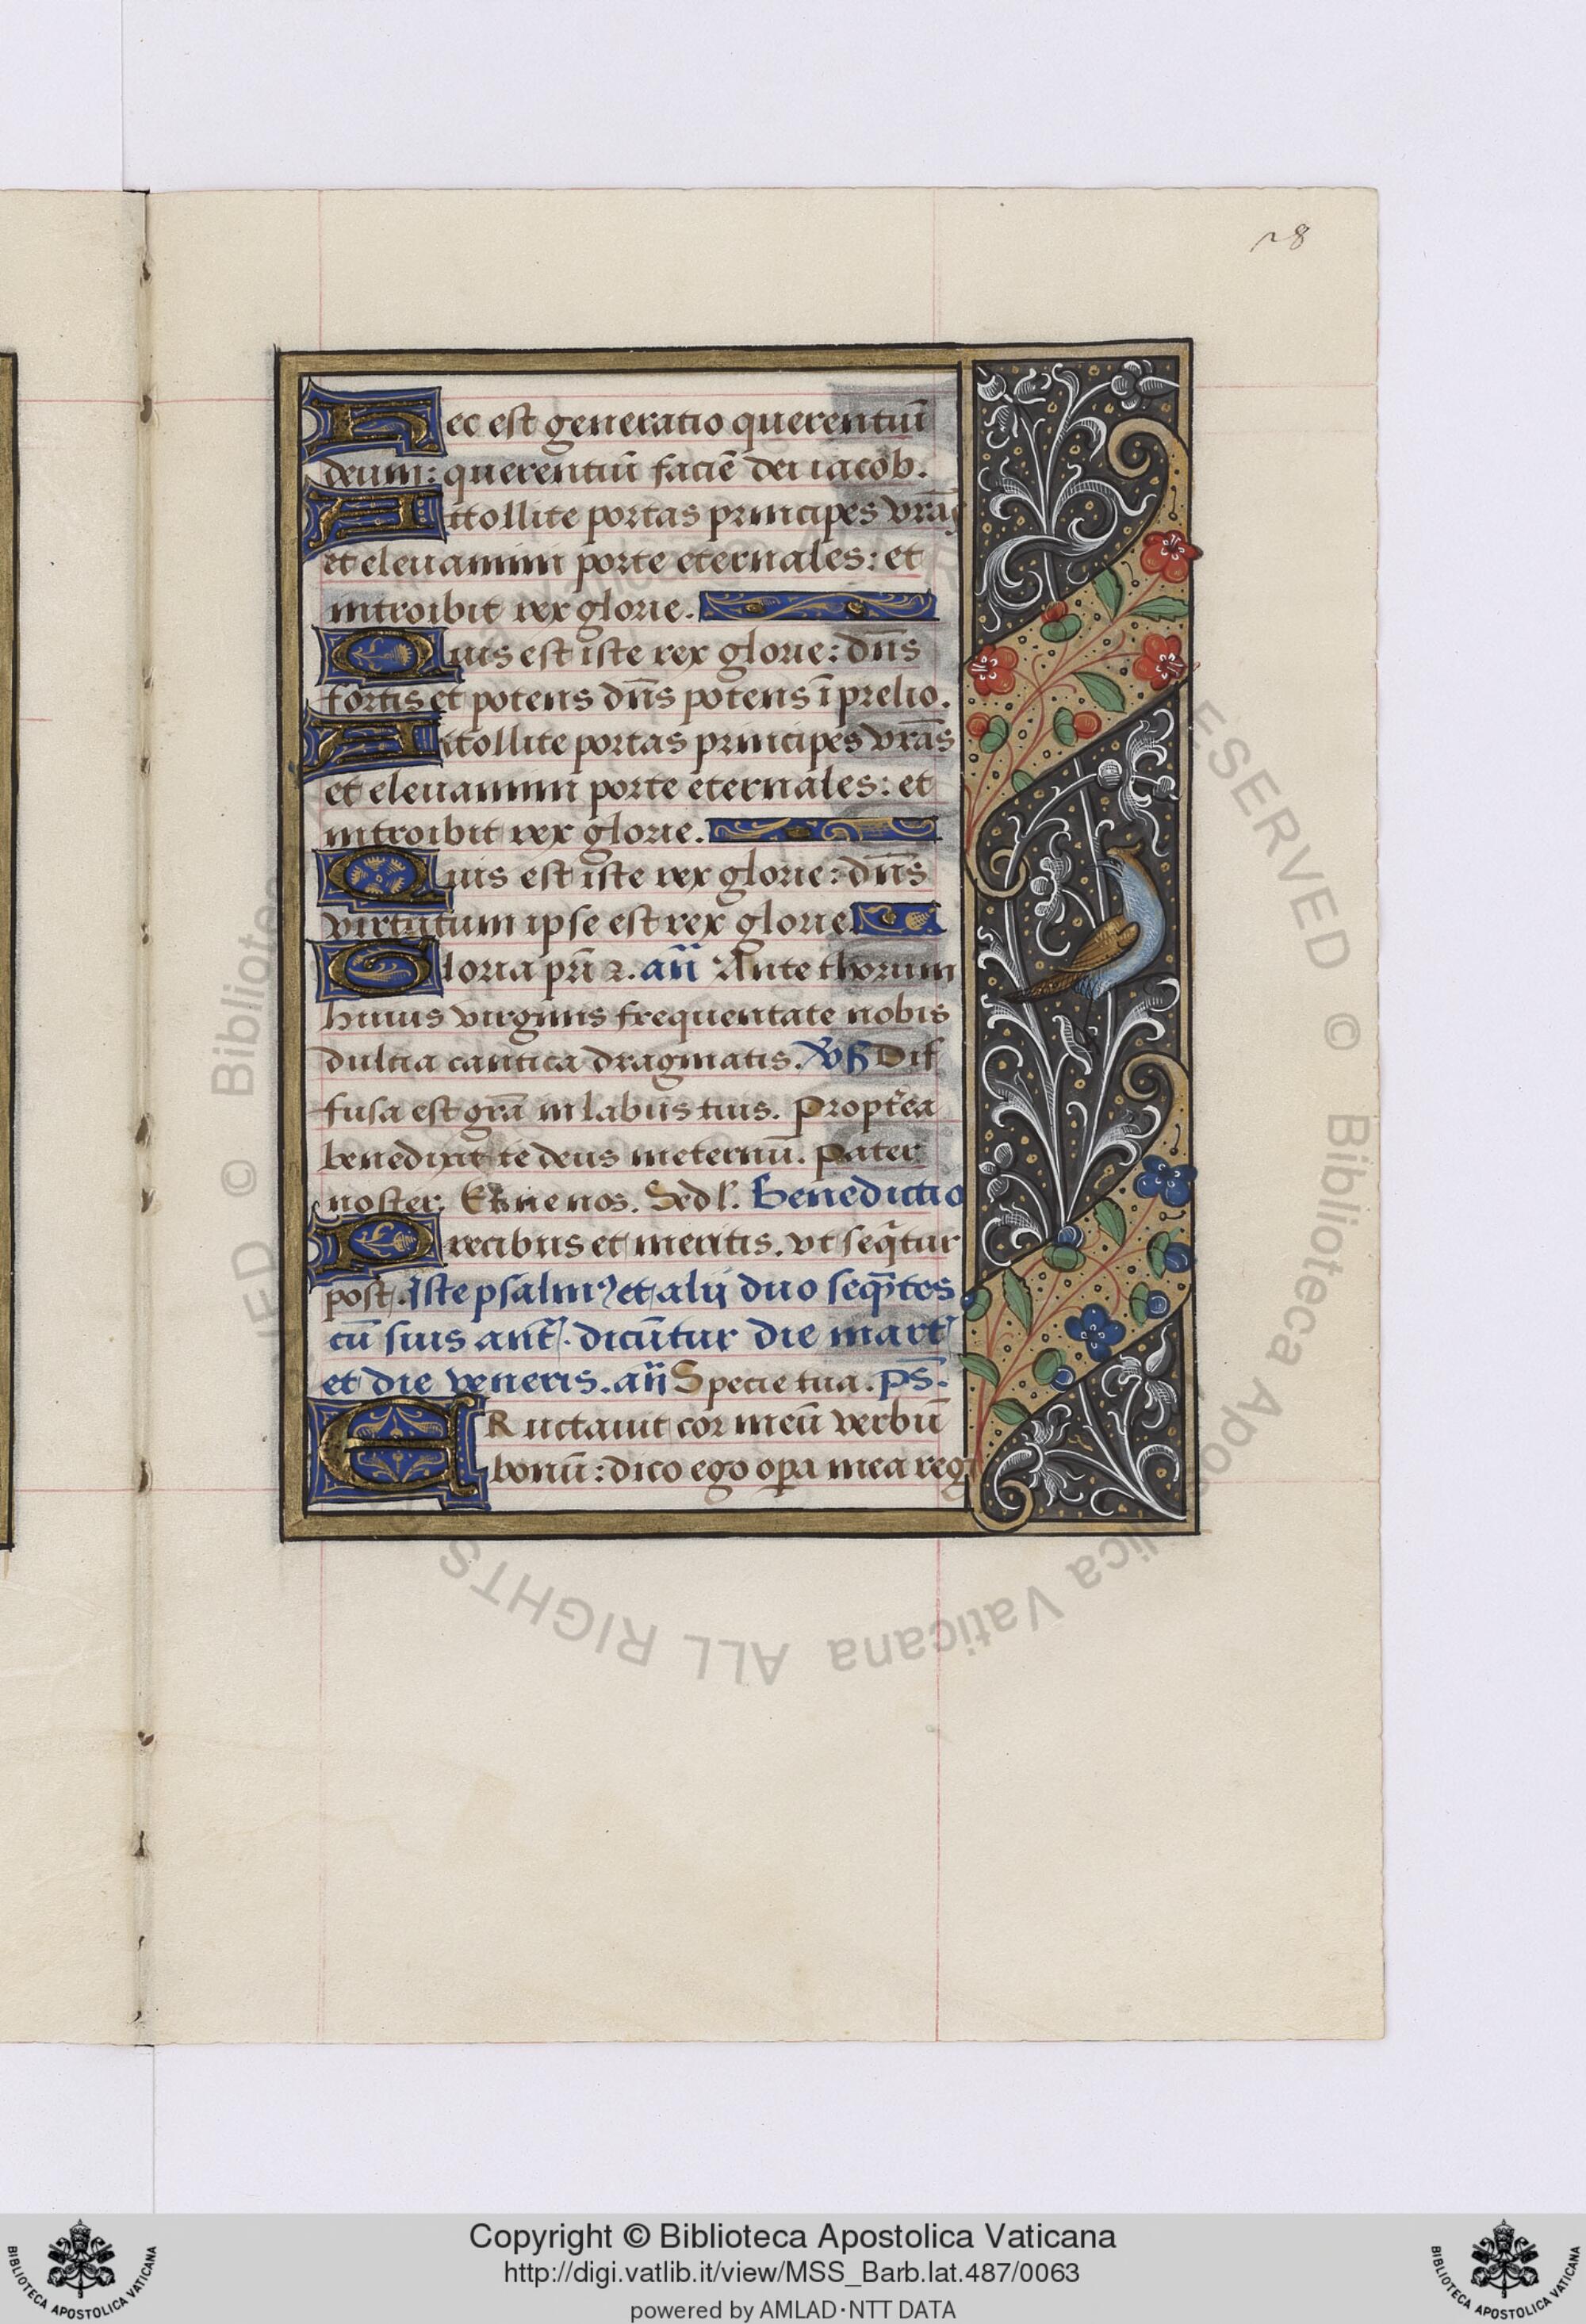 28
Hec est generatio querentiū
deum: querentiū faciē dei iacob.
Attollite portas principes vrās
et eleuamini porte eternales: et
introibit rex glorie.
Quis est iste rex glorie: dn̄s
fortis et potens dn̄s potens ī prelio.
Attollite portas principes vrās
et eleuamini porte eternales: et
introibit rex glorie.
Quis est iste rex glorie: dn̄s
virtutum ipse est rex glorie.
Gloria pr̄i ⁊. an̄ Ante thorum
huius virginis frequentate nobis
dulcia cantica dragmatis. Dif
fusa est grā in labiis tuis. Propt̄ea
benedixit te deus ineternū. Pater
noster. Et ne nos. Sed l. Benedictio
Precibus et meritis. vt seq̄tur
post. Iste psalmꝰ et alij duo seq̄ntes
cū suis ant. dicūtur die mart
et die veneris. an̄ Specie tua. ps̄.
ERuctauit cor meū verbū
bonū: dico ego oꝑa mea regi
© Biblioteca Apostolica Vaticana ALL RIGHTS RESERVED © Biblioteca
Copyright © Biblioteca Apostolica Vaticana
http://digi.vatlib.it/view/MSS_Barb.lat.487/0063
powered by AMLAD·NTT DATA
BIBLIOTECA APOSTOLICA VATICANA
BIBLIOTECA APOSTOLICA VATICANA